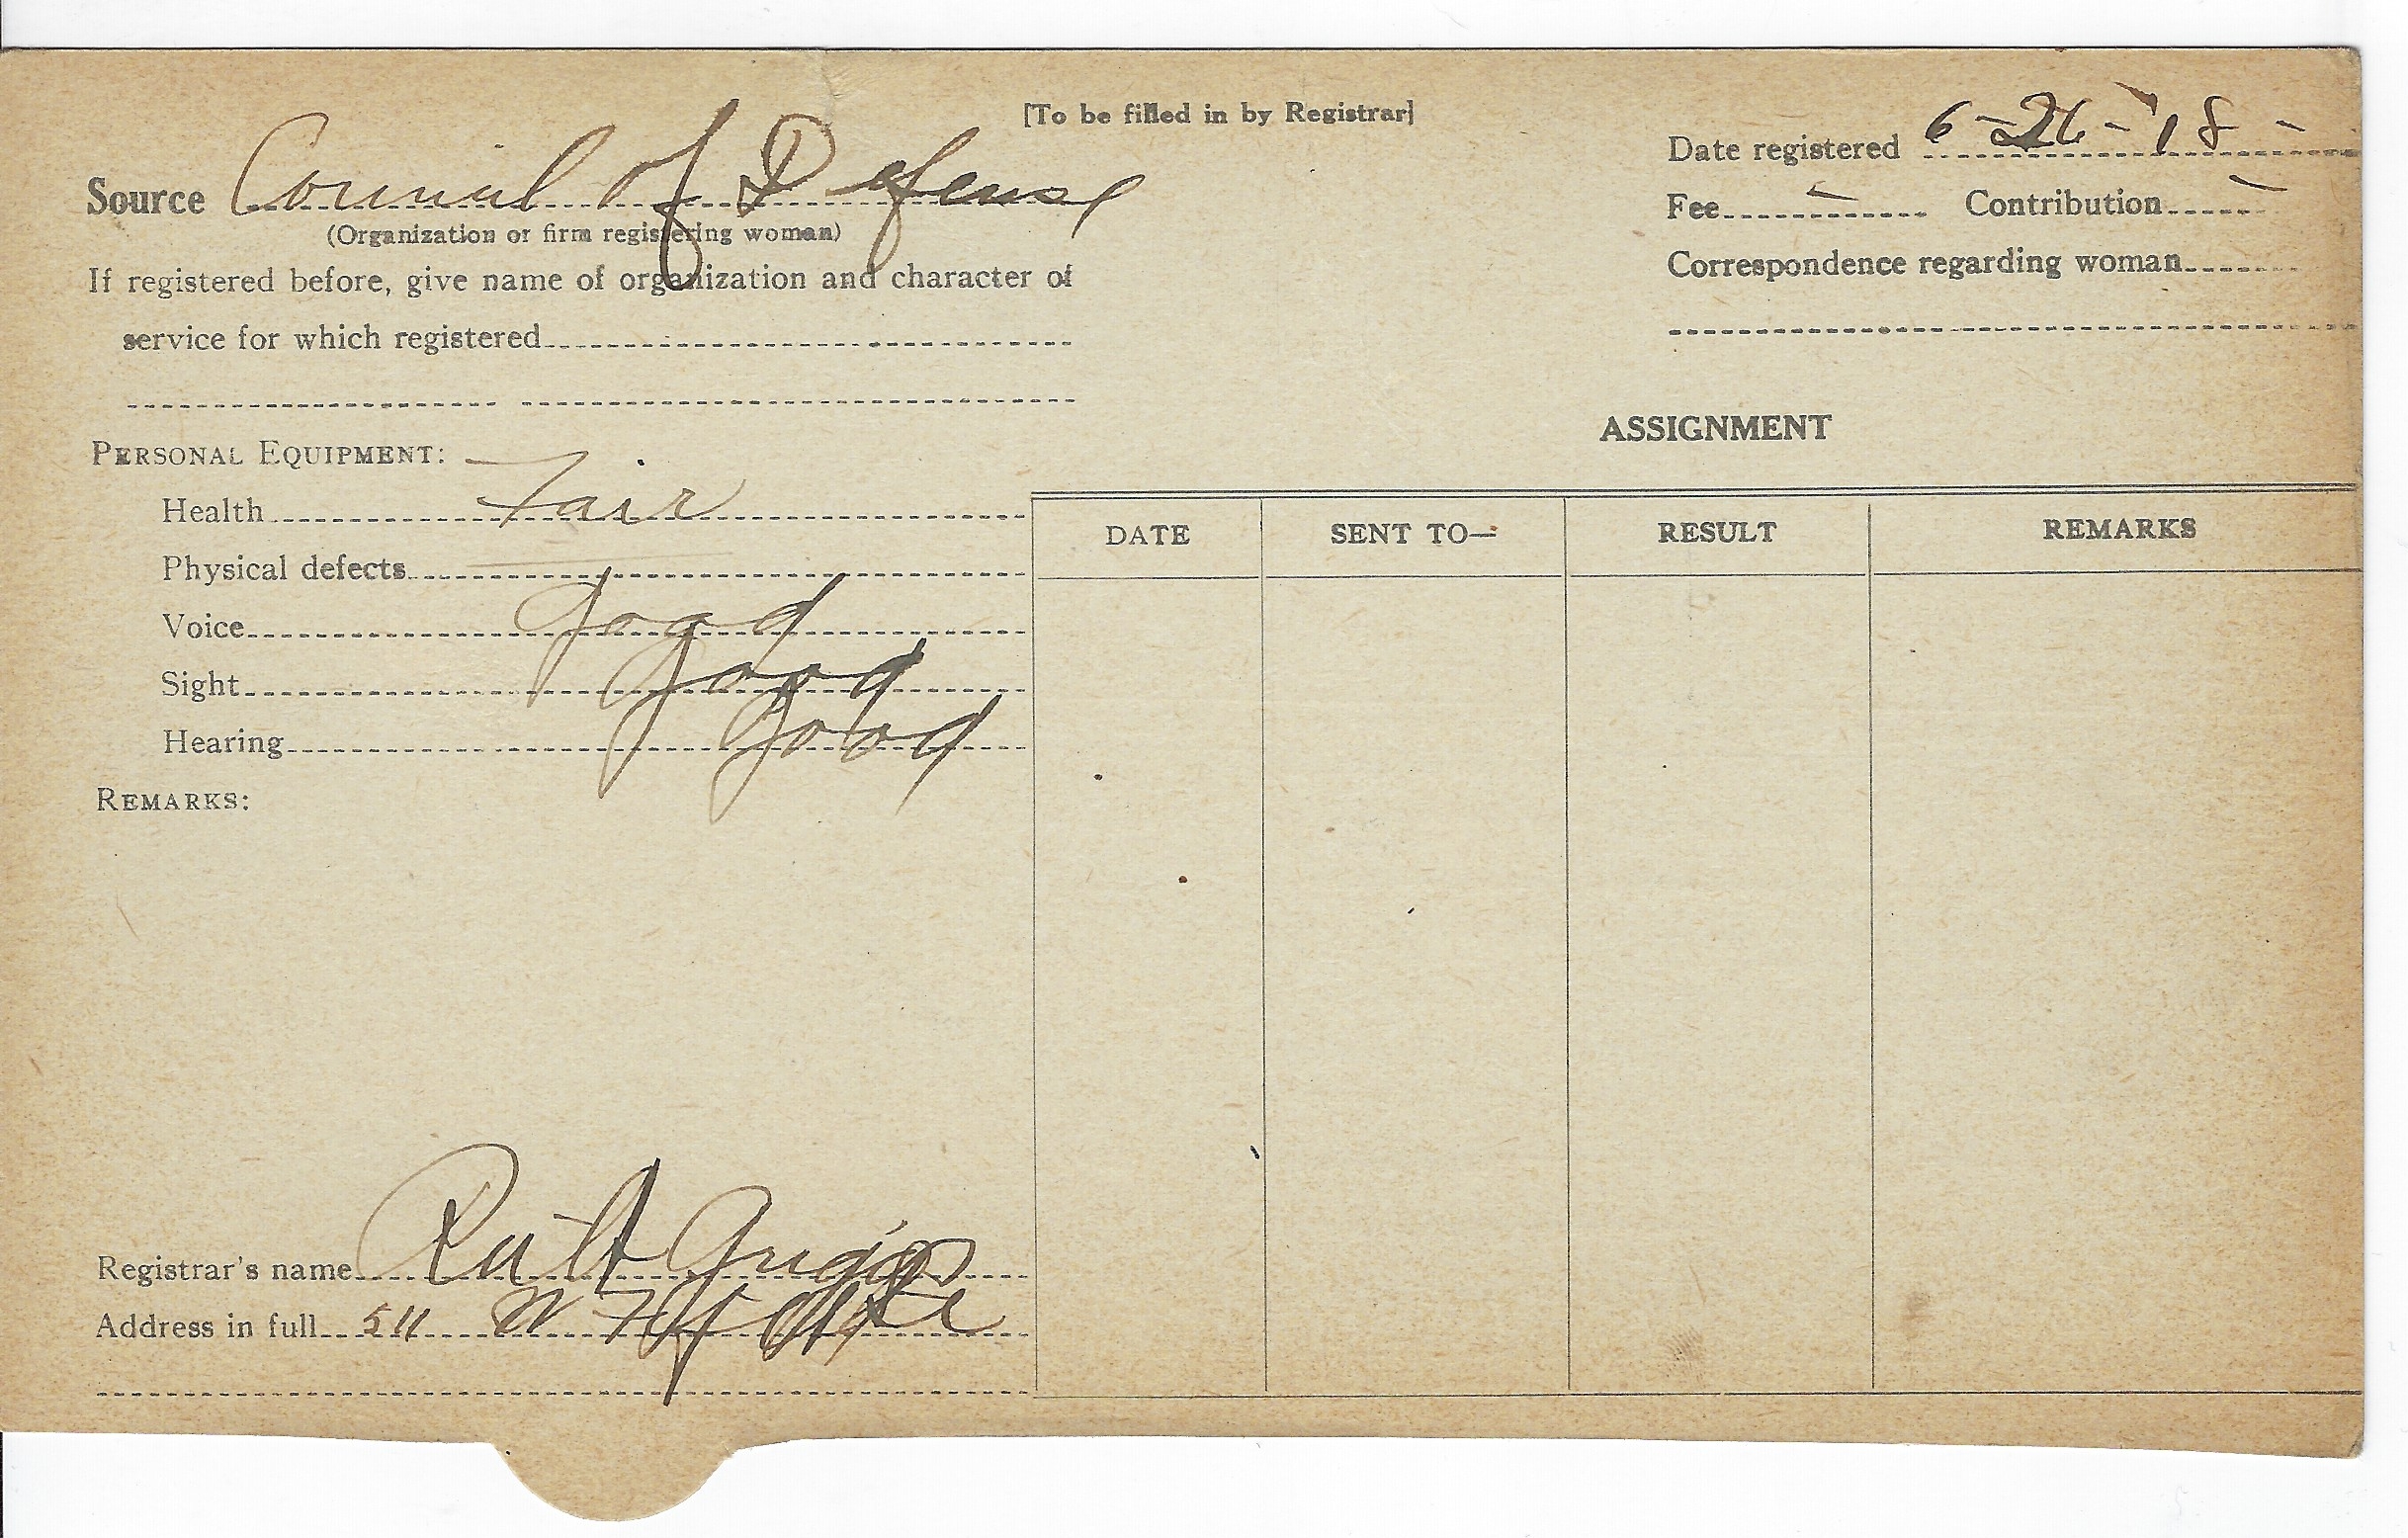 [To be filled in by Registrar]
Date registered 6-26-'18-
Source Council of Defense
(Organization or firm registering woman)
Fee - Contribution -
If registered before, give name of organization and character of
service for which registered
Correspondence regarding woman
PERSONAL EQUIPMENT:
ASSIGNMENT
Health Fair
DATE SENT TO— RESULT REMARKS
Physical defects —
Voice Good
Sight Good
Hearing Good
REMARKS:
Registrar's name Ruth Griggs
Address in full 511 W